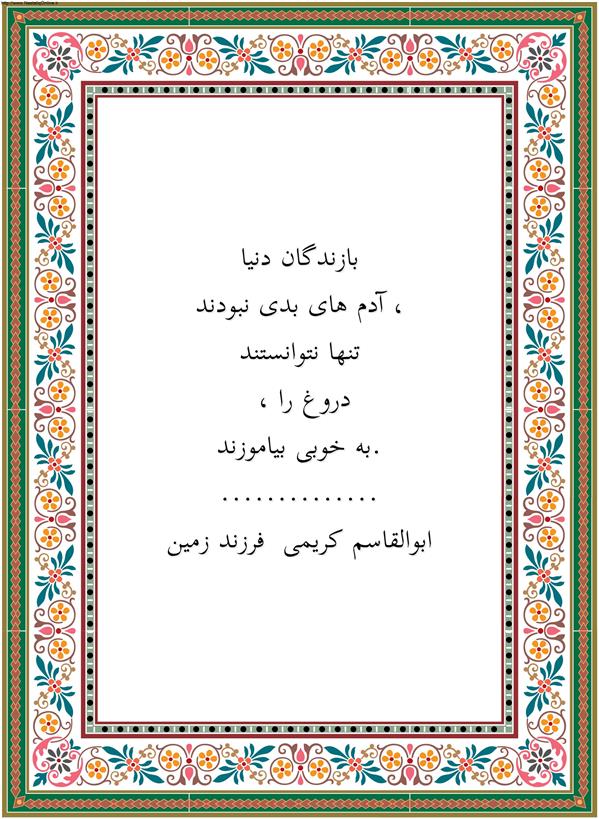 http://www.NastaliqOnline.ir
بازندگان دنیا
آدم های بدی نبودند ،
تنها نتوانستند
دروغ را ،
به خوبی بیاموزند.
..............
ابوالقاسم کریمی فرزند زمین